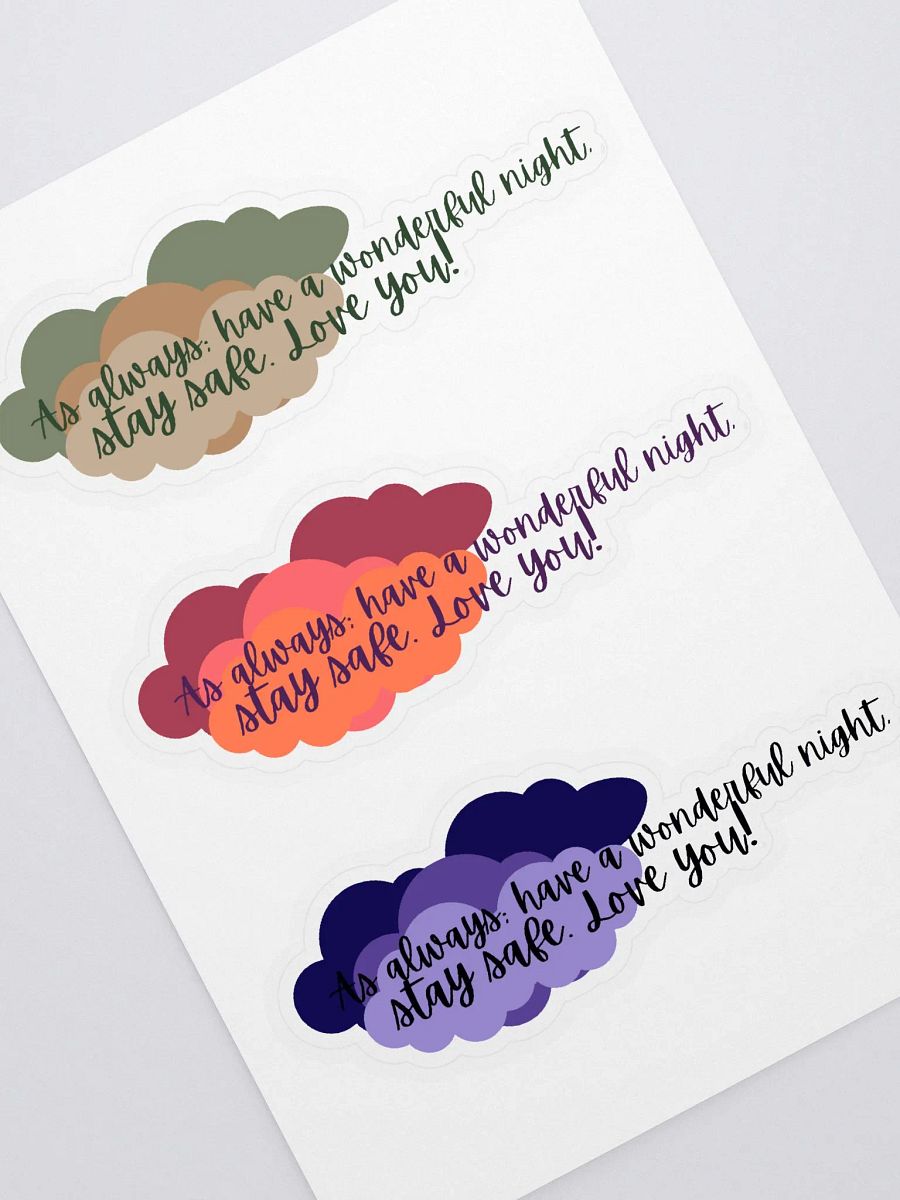 As always: have a wonderful night.
stay safe. Love you!
As always: have a wonderful night.
stay safe. Love you!
As always: have a wonderful night.
stay safe. Love you!